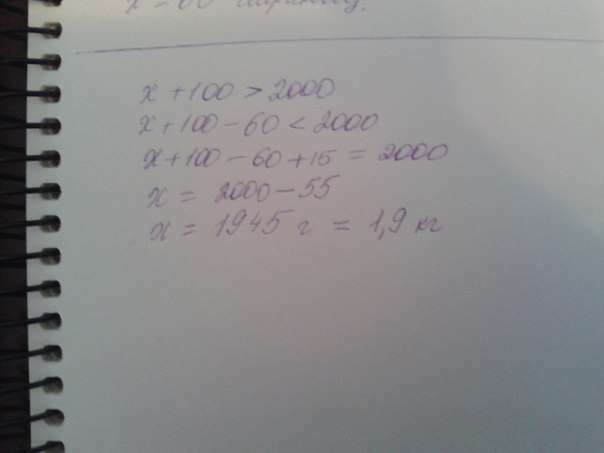 x + 100 > 2000
x + 100 - 60 < 2000
x + 100 - 60 + 15 = 2000
x = 2000 - 55
x = 1945 г = 1,9 кг